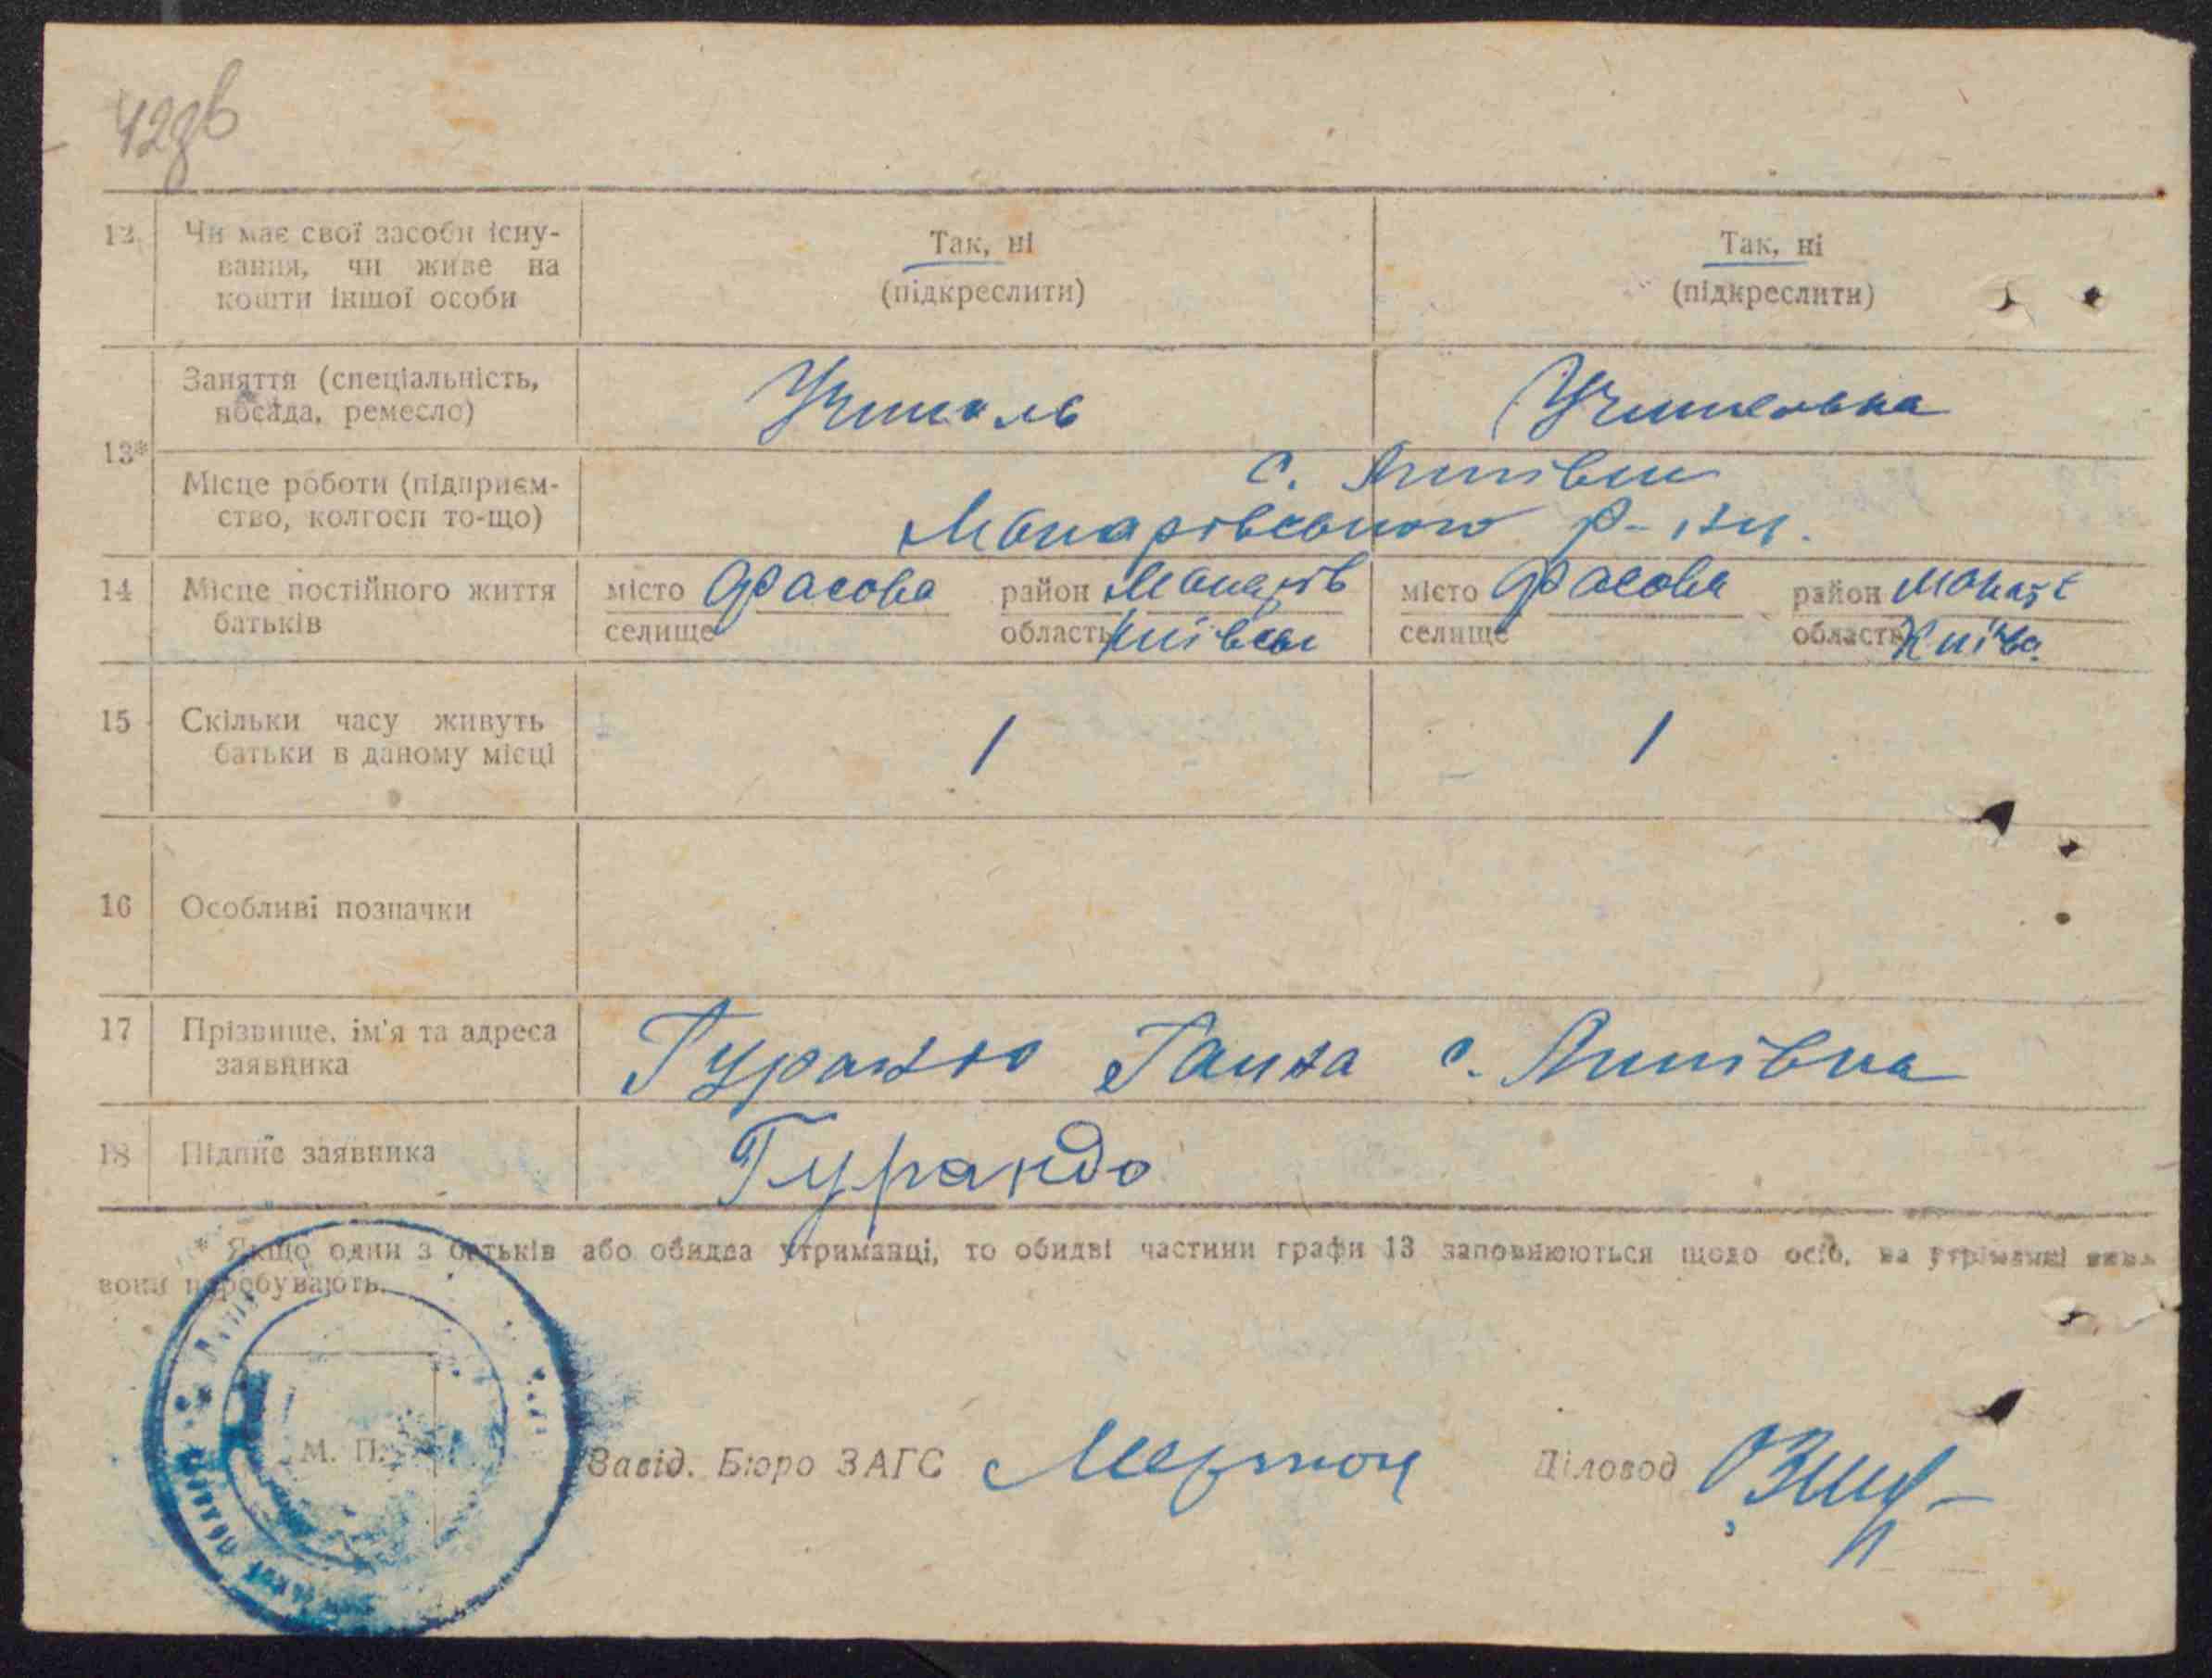 42зв
12. Чи має свої засоби існу- Так, ні Так, ні
вання, чи живе на (підкреслити) (підкреслити)
кошти іншої особи
Заняття (спеціальність, Учитель Учителька
посада, ремесло)
13*
Місце роботи (підприєм- с. Липівки
ство, колгосп то-що) Макарівського р-ну.
14 Місце постійного життя місто Фасова район Макарів місто Фасова район Макар
батьків селище область Київськ селище область Київ.
15 Скільки часу живуть 1 1
батьки в даному місці
16 Особливі позначки
17 Прізвище, ім'я та адреса Гурандо Ганна с. Липівка
заявника
18 Підпис заявника Гурандо
* Якщо один з батьків або обидва утриманці, то обидві частини графи 13 заповнюються щодо осіб, на утриманні яких
вони перебувають.
М. П. Завід. Бюро ЗАГС Діловод